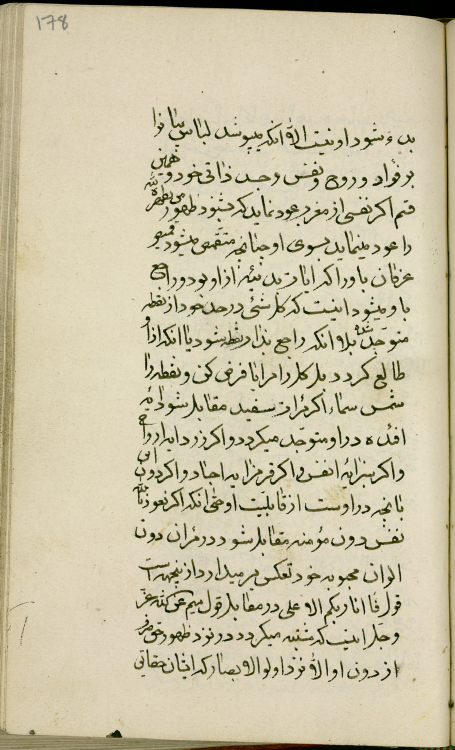 178
بدء شود او نیست الا آنکه میپوشد لباس بهاء را
بر فؤاد و روح و نفس و جسد ذاتی خود و همین
قسم اگر نفسی از مغرب عود نماید که بشود ظهور من یظهره الله
را عود مینماید بسوی او چنانچه متقمص میشود قمیص
عرفان باو را که آیات بدئیه از او بود و راجع
باو میشود اینست که کل شئ در حد خود از نقطه
متوجد شده بلا آنکه راجع بذات نقطه شود یا آنکه از او
طالع گردد بل کل را مرایا فرض کن و نقطه را
شمس سماء اگر مرآت سفید مقابل شود آیه
افئده در او متوجد میگردد و اگر زرد آیه ارواح
و اگر سبز آیه انفس و اگر قرمز آیه اجساد و اگر دون این
تا آنچه در اوست از قابلیت او حتی آنکه اگر نعوذ بالله
نفس دون مؤمنه مقابل شود در مرآت دون
الوان محبوبه خود تعکس بر میدارد از اینجهت است
قول فانا ربکم الاعلی در مقابل قول میم عین کلمه عز
و جل اینست که مشتبه میگردد در نزد ظهور حق
از دون او الا نزد اولوالابصار که ایشان حقایق